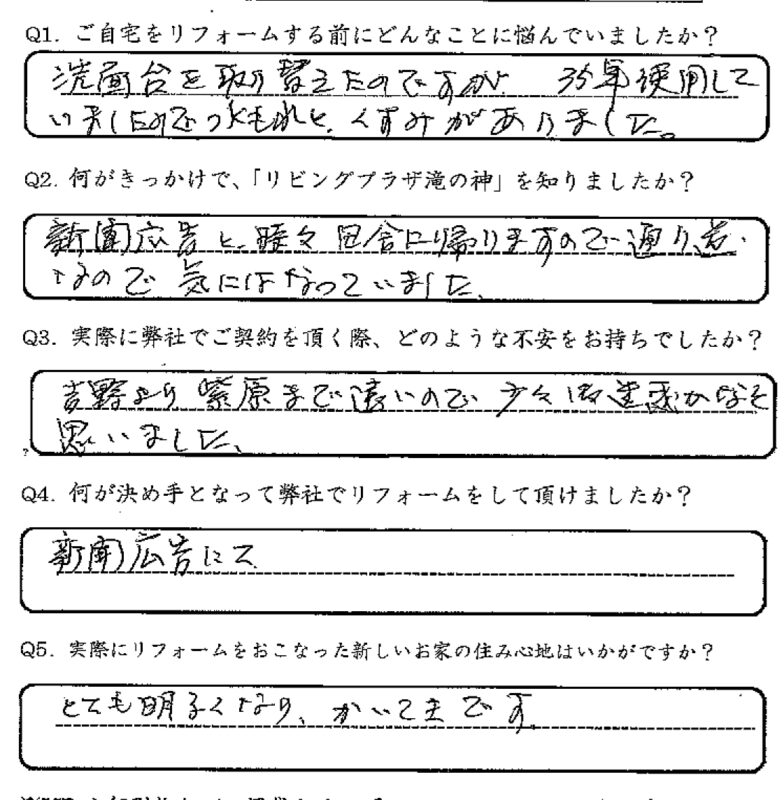 Q1. ご自宅をリフォームする前にどんなことに悩んでいましたか？
洗面台を取り替えたのですが 35年使用して
いましたので、水もれと、くすみがありました。
Q2. 何がきっかけで、「リビングプラザ滝の神」を知りましたか？
新聞広告と、時々田舎に帰りますので通り道
なので気にはなっていました、
Q3. 実際に弊社でご契約を頂く際、どのような不安をお持ちでしたか？
吉野より紫原まで遠いので少々御迷惑かなぁと
思いました、
Q4. 何が決め手となって弊社でリフォームをして頂けましたか？
新聞広告にて
Q5. 実際にリフォームをおこなった新しいお家の住み心地はいかがですか？
とても明るくなり、かいてきです、